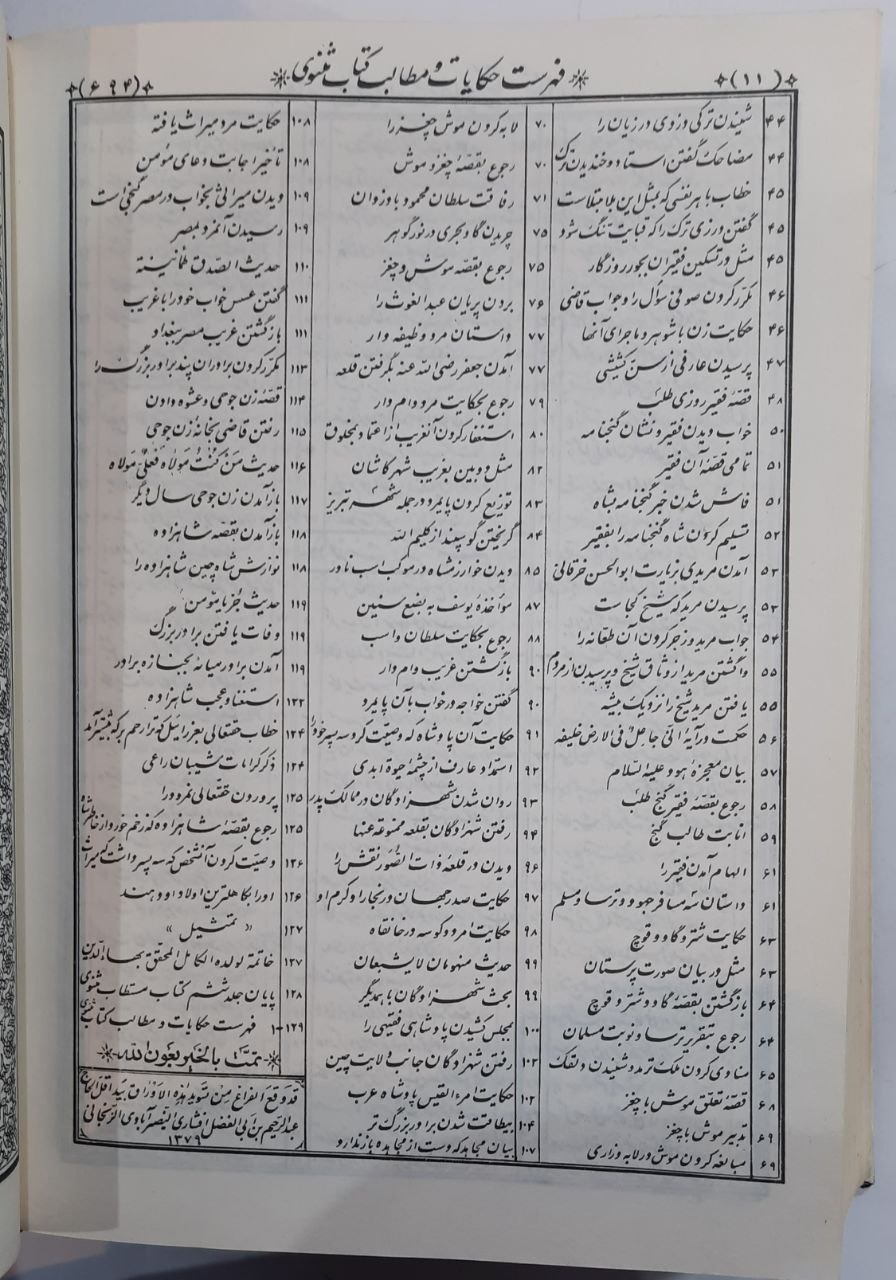 (۱۱)
فهرست حکایات و مطالب کتاب مثنوی
(۶۹۴)
۴۴ شنیدن ترکی دزدی درزیان را
۴۴ مضاحک گفتن استاد و خندیدن ترک
۴۵ خطاب با هر نفسی که بمثل این بلا مبتلاست
۴۵ گفتن درزی ترک را که قبایت تنگ شود
۴۵ مثل در تسکین فقیران بجور روزگار
۴۶ مکرر کردن صوفی سؤال را و جواب قاضی
۴۶ حکایت زن با شوهر و ماجرای آنها
۴۷ پرسیدن عارفی از سن کشیشی
۴۸ قصه فقیر روزی طلب
۵۰ خواب دیدن فقیر و نشان گنجنامه
۵۱ تمامی قصه آن فقیر
۵۱ فاش شدن خبر گنجنامه بشاه
۵۲ تسلیم کردن شاه گنجنامه را بفقیر
۵۲ آمدن مریدی بزیارت ابوالحسن خرقانی
۵۳ پرسیدن مرید که شیخ کجاست
۵۴ جواب مرید و زجر کردن آن طعانه را
۵۵ واگشتن مرید از وثاق شیخ و پرسیدن از مردم
۵۵ یافتن مرید شیخ را نزدیک بیشه
۵۶ حکمت در آیه انی جاعل فی الارض خلیفه
۵۷ بیان معجزه هود علیه السلام
۵۸ رجوع بقصه فقیر گنج طلب
۵۹ انابت طالب گنج
۶۱ الهام آمدن فقیر را
۶۱ داستان سه مسافر جهود و ترسا و مسلم
۶۳ حکایت شتر و گاو و قوچ
۶۳ مثل در بیان صورت پرستان
۶۴ بازگشتن بقصه گاو و شتر و قوچ
۶۴ رجوع بتقریر ترسا و نوبت مسلمان
۶۵ منادی کردن ملک ترمد و شنیدن دلقک
۶۸ قصه تعلق موش با چغز
۶۹ تدبیر موش با چغز
۶۹ مبالغه کردن موش در لابه و زاری
۷۰ لابه کردن موش چغز را
۷۰ رجوع بقصه چغز و موش
۷۱ رفاقت سلطان محمود با دزدان
۷۵ چریدن گاو بحری در نور گوهر
۷۵ رجوع بقصه موش و چغز
۷۶ بردن پریان عبدالغوث را
۷۷ داستان مرد وظیفه دار
۷۷ آمدن جعفر رضی الله عنه بگرفتن قلعه
۷۹ رجوع بحکایت مرد وام دار
۸۰ استغفار کردن آنغریب از اعتماد بمخلوق
۸۲ مثل دوبین بغریب شهر کاشان
۸۳ توزیع کردن پایمرد در جمله شهر تبریز
۸۴ گریختن گوسپند از کلیم الله
۸۵ دیدن خوارزمشاه در موکب اسب نادر
۸۷ مواخذه یوسف به بضع سنین
۸۸ رجوع بحکایت سلطان و اسب
۹۰ بازگشتن غریب وام دار
۹۰ گفتن خواجه در خواب بآن پایمرد
۹۱ حکایت آن پادشاه که وصیت کرد سه پسر خود را
۹۲ استمداد عارف از چشمه حیوة ابدی
۹۳ روان شدن شهزادگان در ممالک پدر
۹۴ رفتن شهزادگان بقلعه ممنوعه عنها
۹۶ دیدن در قلعه ذات الصور نقش را
۹۷ حکایت صدر جهان در بخارا و کرم او
۹۸ حکایت امرد و کوسه در خانقاه
۹۹ حدیث منهومان لایشبعان
۹۹ بحث شهزادگان با همدیگر
۱۰۰ بمجلس کشیدن پادشاهی فقیهی را
۱۰۲ رفتن شهزادگان جانب ولایت چین
۱۰۲ حکایت امرء القیس پادشاه عرب
۱۰۴ بیطاقت شدن برادر بزرگ تر
۱۰۷ بیان مجاهد که دست از مجاهده باز ندارد
۱۰۸ حکایت مرد میراث یافته
۱۰۸ تأخیر اجابت دعای مؤمن
۱۰۹ دیدن میراثی بخواب در مصر گنجی است
۱۰۹ رسیدن آنمرد بمصر
۱۱۰ حدیث الصدق طمانینة
۱۱۱ گفتن عسس خواب خود را با غریب
۱۱۱ بازگشتن غریب مصر ببغداد
۱۱۳ مکرر کردن برادران پند برادر بزرگ را
۱۱۴ قصه زن جوحی و عشوه دادن
۱۱۵ رفتن قاضی بخانه زن جوحی
۱۱۶ حدیث من کنت مولاه فعلی مولاه
۱۱۷ باز آمدن زن جوحی سال دیگر
۱۱۸ باز آمدن بقصه شاهزاده
۱۱۸ نوازش شاه چین شاهزاده را
۱۱۹ حدیث جز یا مؤمن
۱۱۹ وفات یافتن برادر بزرگ
۱۱۹ آمدن برادر میانه بجنازه برادر
۱۲۲ استغناء و عجب شاهزاده
۱۲۴ خطاب حقتعالی بعزرائیل که ترا رحم بر که بیشتر آمد
۱۲۴ ذکر کرامات شیبان راعی
۱۲۵ پروردن حقتعالی نمرود را
۱۲۵ رجوع بقصه شاهزاده که زخم خورد از خاطر شاه
۱۲۶ وصیت کردن آنشخص که سه پسر داشت که میراث
۱۲۶ او را بکاهلترین اولاد او دهند
۱۲۷ « تمثیل »
۱۲۷ خاتمة لولده الکامل المحقق بهاء الدین
۱۲۸ پایان جلد ششم کتاب مستطاب مثنوی
۱۲۹-۱ فهرست حکایات و مطالب کتاب مثنوی
تمت بالخیر بعون الله
قد وقع الفراغ من تسوید هذه الاوراق بید اقل الحاج
عبدالرحیم بن ابی الفضل افشاری النصرآبادی الزنجانی
۱۳۷۹